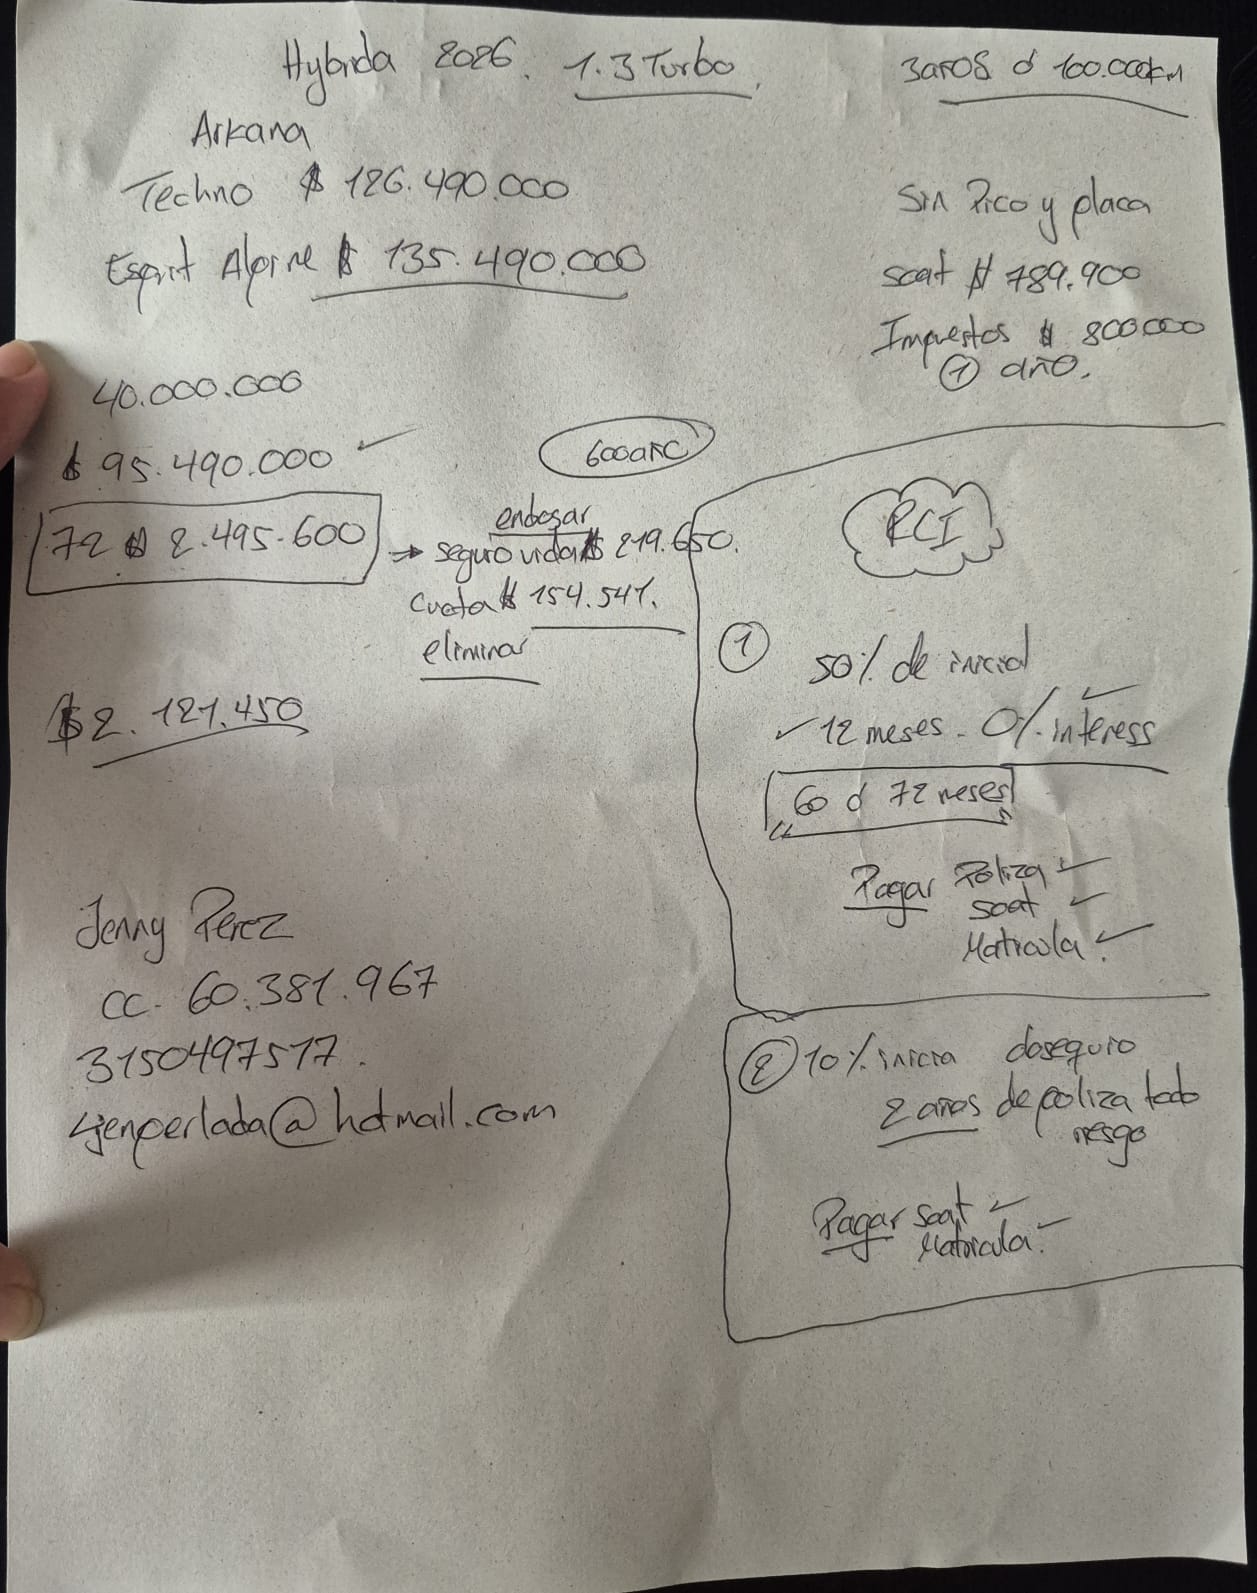 Hybrida 2026. 1.3 Turbo.
3 años ó 100.000km
Arkana
Techno $ 126.490.000
Esprit Alpine $ 135.490.000
Sin Pico y placa
soat $ 789.900
Impuestos $ 800.000
1 año.
40.000.000
$ 95.490.000
72 $ 2.495.600
endosar
seguro vida $ 219.650.
cuota $ 154.541.
eliminar
$ 2.121.450
RCI
1
50% de inicial
12 meses - 0% interess
60 ó 72 meses
Pagar Poliza
soat
Matricula.
2 10% inicia
2 años de poliza todo
riesgo
Pagar soat
Matricula.
Jenny Perez
cc. 60.381.967
3150497517.